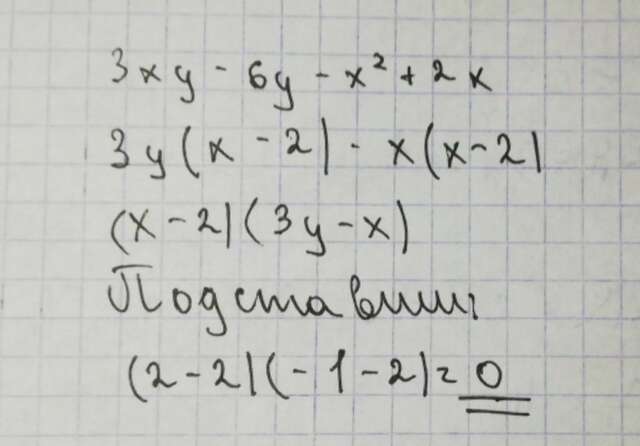 3xy - 6y - x² + 2x
3y(x - 2) - x(x - 2)
(x - 2)(3y - x)
Подставим
(2 - 2)(-1 - 2) = 0